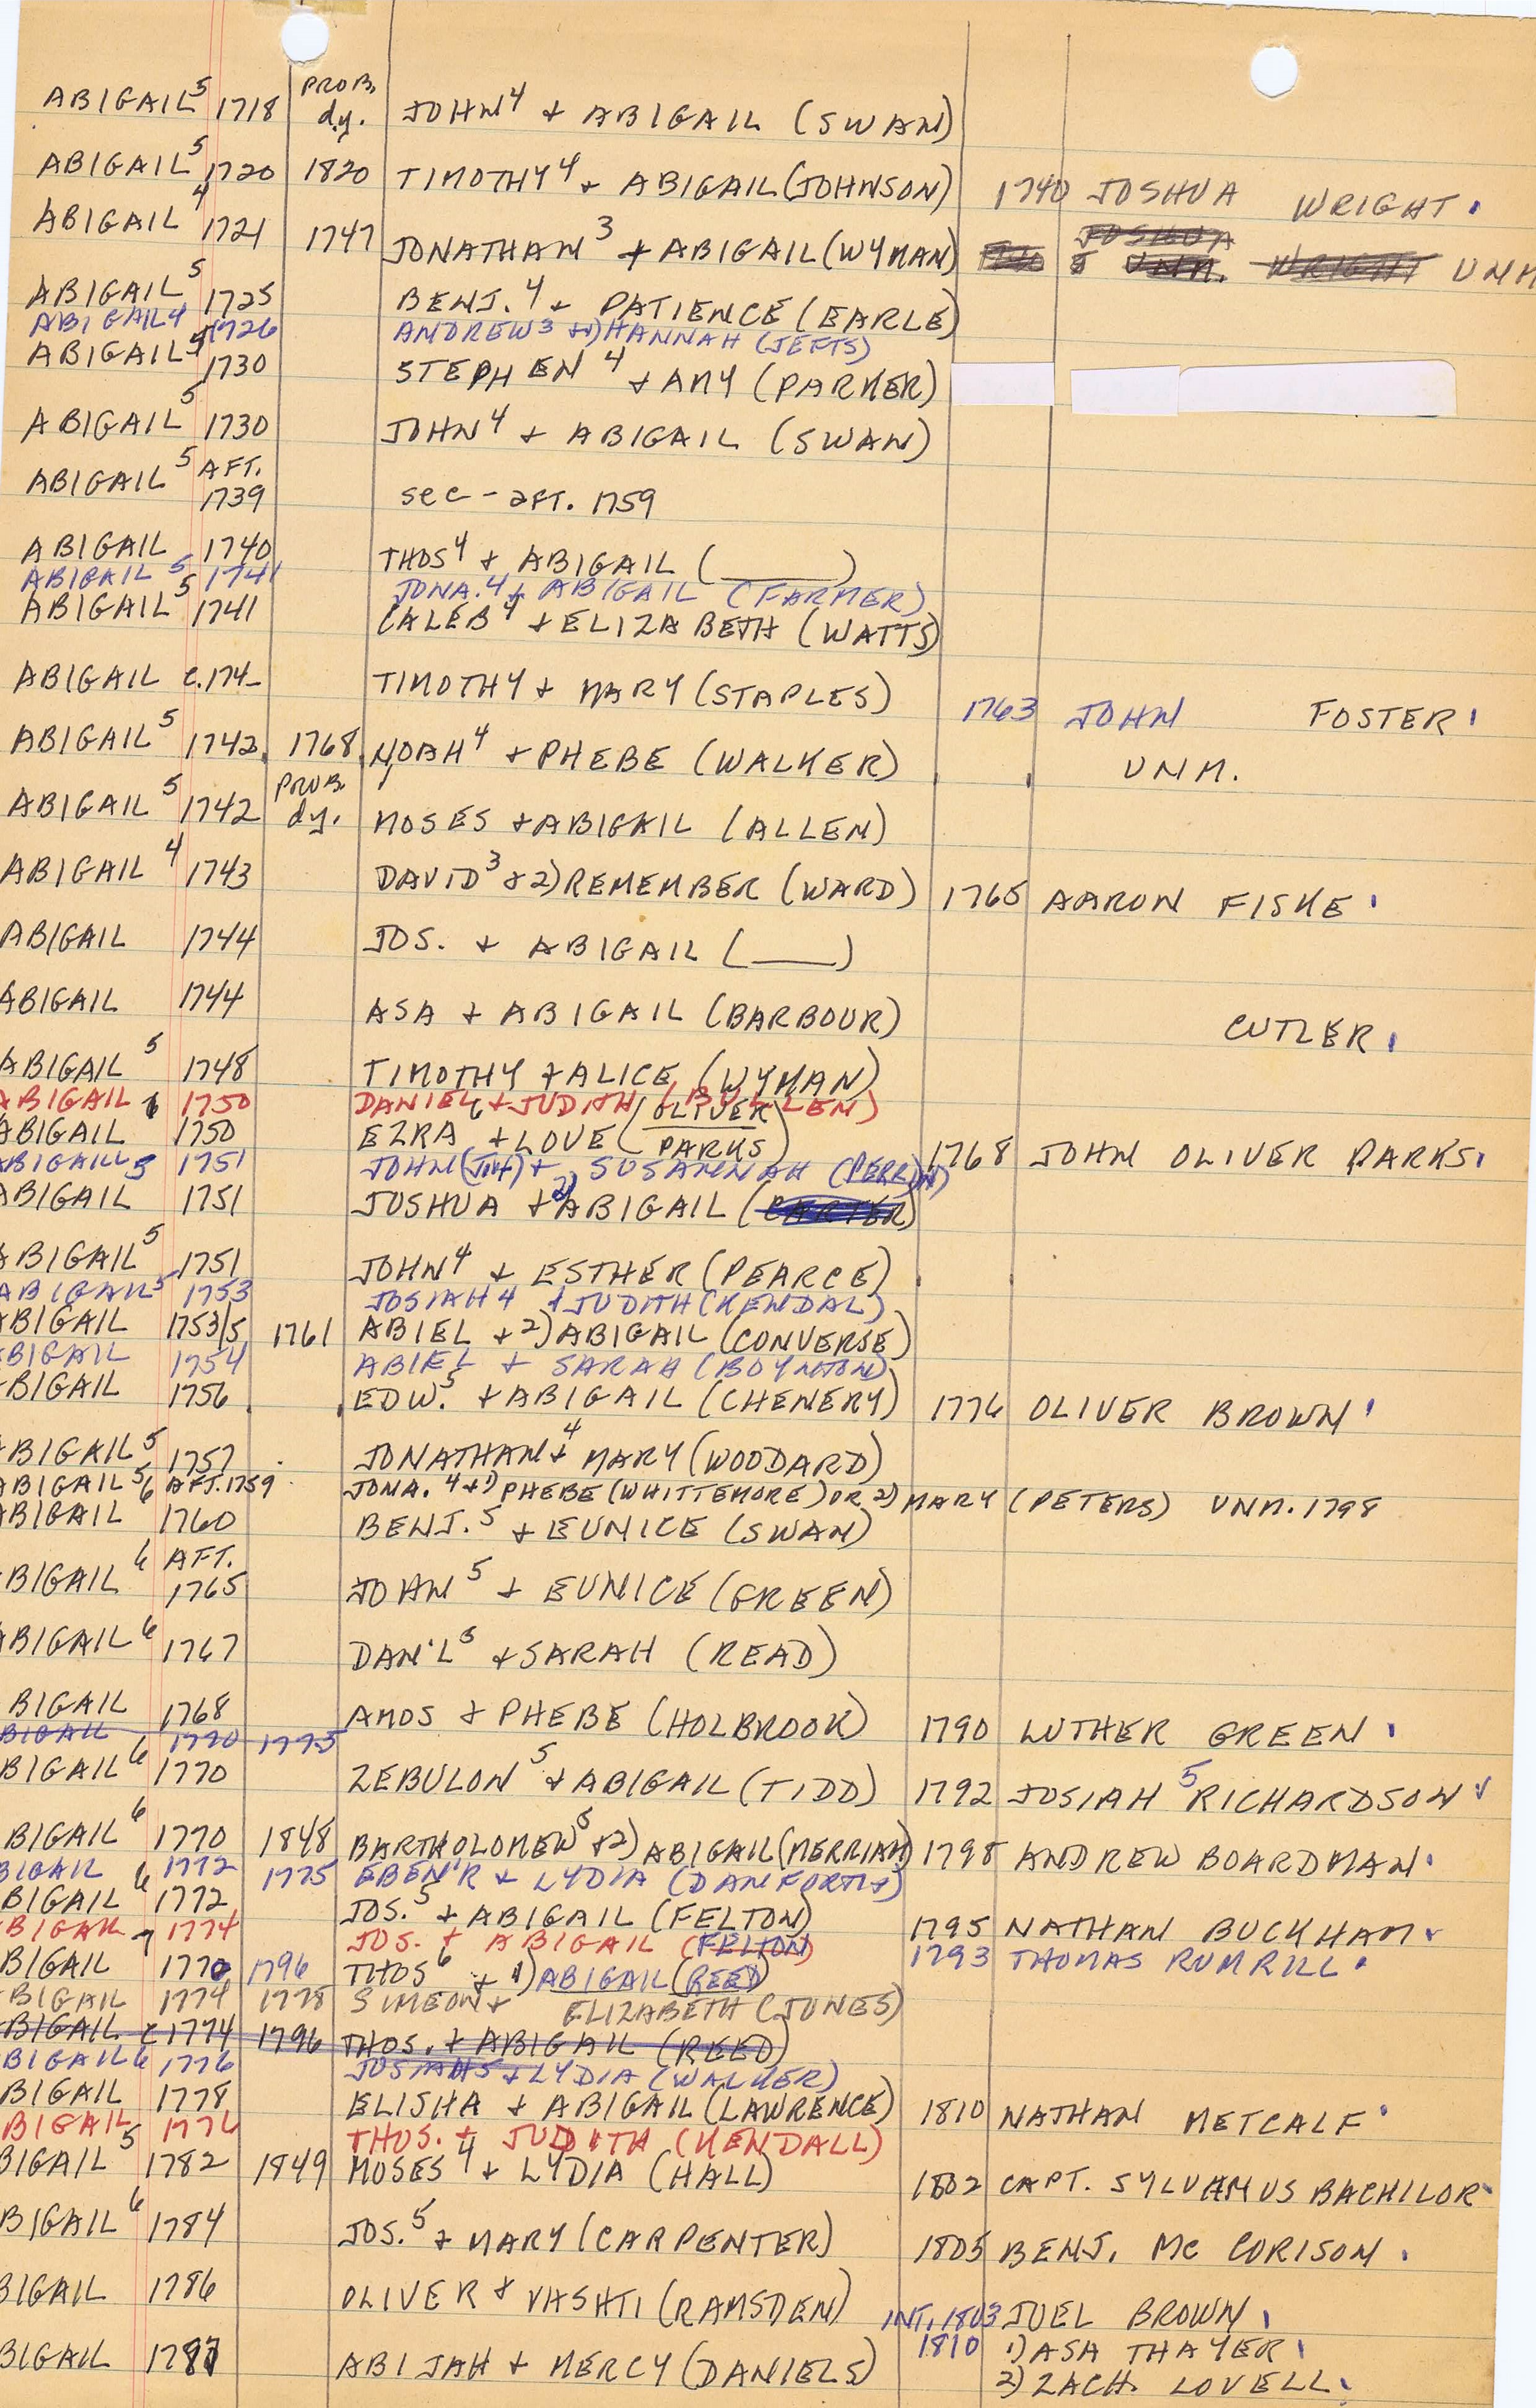 ABIGAIL⁵ 1718 PROB. d.y. JOHN⁴ + ABIGAIL (SWAN)
ABIGAIL⁵ 1720 1820 TIMOTHY⁴ + ABIGAIL (JOHNSON) 1740 JOSHUA WRIGHT
ABIGAIL⁴ 1721 1747 JONATHAN³ + ABIGAIL (WYMAN) JOSHUA UNM. WRIGHT UNM
ABIGAIL⁵ 1725 BENJ.⁴ + PATIENCE (EARLE)
ABIGAIL⁴ 1726 ANDREW³ + 1) HANNAH (JEFTS)
ABIGAIL⁵ 1730 STEPHEN⁴ + AMY (PARKER)
ABIGAIL⁵ 1730 JOHN⁴ + ABIGAIL (SWAN)
ABIGAIL⁵ AFT. 1739 sec - aft. 1759
ABIGAIL 1740 THOS⁴ + ABIGAIL (______)
ABIGAIL⁵ 1741 JONA.⁴ + ABIGAIL (FARMER)
ABIGAIL⁵ 1741 CALEB⁴ + ELIZABETH (WATTS)
ABIGAIL c.174_ TIMOTHY + MARY (STAPLES) 1763 JOHN FOSTER
ABIGAIL⁵ 1742 1768 NOAH⁴ + PHEBE (WALKER) UNM.
ABIGAIL⁵ 1742 PROB. dy. MOSES + ABIGAIL (ALLEN)
ABIGAIL⁴ 1743 DAVID³ + 2) REMEMBER (WARD) 1765 AARON FISKE
ABIGAIL 1744 JOS. + ABIGAIL (____)
ABIGAIL 1744 ASA + ABIGAIL (BARBOUR) CUTLER
ABIGAIL⁵ 1748 TIMOTHY + ALICE (WYMAN)
ABIGAIL 1750 DANIEL⁶ + JUDITH (BULLEN)
ABIGAIL 1750 EZRA + LOVE (OLIVER PARKS) 1768 JOHN OLIVER PARKS
ABIGAIL⁵ 1751 JOHN + SUSANNAH (PERRIN)
ABIGAIL 1751 JOSHUA + 2) ABIGAIL (CARTER)
ABIGAIL⁵ 1751 JOHN⁴ + ESTHER (PEARCE)
ABIGAIL⁵ 1753 JOSIAH⁴ + JUDITH (KENDAL)
ABIGAIL 1753/5 1761 ABIEL + 2) ABIGAIL (CONVERSE)
BIGAIL 1754 ABIEL + SARAH (BOYNTON)
BIGAIL 1756 EDW.⁵ + ABIGAIL (CHENERY) 1776 OLIVER BROWN
BIGAIL⁵ 1757 JONATHAN⁴ + MARY (WOODARD)
ABIGAIL AFT. 1759 JONA.⁴ + 1) PHEBE (WHITTEMORE) OR 2) MARY (PETERS) UNM. 1798
ABIGAIL 1760 BENJ.⁵ + EUNICE (SWAN)
BIGAIL⁶ AFT. 1765 JOHN⁵ + EUNICE (GREEN)
ABIGAIL⁶ 1767 DAN'L⁵ + SARAH (READ)
BIGAIL 1768 AMOS + PHEBE (HOLBROOK) 1790 LUTHER GREEN
BIGAIL 1770 1775
BIGAIL⁶ 1770 ZEBULON⁵ + ABIGAIL (TIDD) 1792 JOSIAH⁵ RICHARDSON
BIGAIL⁶ 1770 1848 BARTHOLOMEW⁵ + 2) ABIGAIL (MERRIAM) 1798 ANDREW BOARDMAN
BIGAIL 1772 1775 EBEN'R + LYDIA (DANFORTH)
BIGAIL⁶ 1772 JOS.⁵ + ABIGAIL (FELTON) 1795 NATHAN BUCKHAM
BIGAIL 1774 JOS. + ABIGAIL (FELTON)
BIGAIL⁷ 1770 1796 THOS⁶ + 1) ABIGAIL (REED) 1793 THOMAS RUMRILL
BIGAIL 1774 1778 SIMEON + ELIZABETH (JONES)
BIGAIL c1774 1796 THOS. + ABIGAIL (REED)
BIGAIL⁶ 1776 JOSIAH⁵ + LYDIA (WALKER)
BIGAIL 1778 ELISHA + ABIGAIL (LAWRENCE) 1810 NATHAN METCALF
BIGAIL 1776 THOS. + JUDITH (KENDALL)
BIGAIL⁵ 1782 1849 MOSES⁴ + LYDIA (HALL) 1802 CAPT. SYLVANUS BACHILOR
BIGAIL⁶ 1784 JOS.⁵ + MARY (CARPENTER) 1805 BENJ. Mc CORISON
BIGAIL 1786 OLIVER + VASHTI (RAMSDEN) INT. 1803 JOEL BROWN
BIGAIL 1787 ABIJAH + MERCY (DANIELS) 1810 1) ASA THAYER
2) ZACH. LOVELL